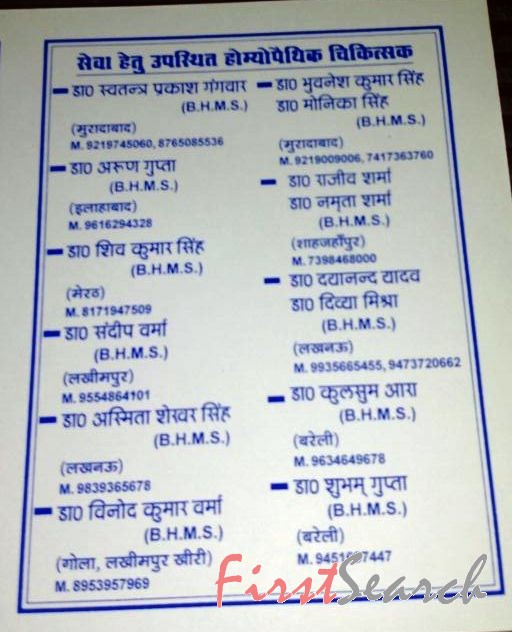 सेवा हेतु उपस्थित होम्योपैथिक चिकित्सक
डा0 स्वतन्त्र प्रकाश गंगवार
(B.H.M.S.)
(मुरादाबाद)
M. 9219745060, 8765085536
डा0 अरूण गुप्ता
(B.H.M.S.)
(इलाहाबाद)
M. 9616294328
डा0 शिव कुमार सिंह
(B.H.M.S.)
(मेरठ)
M. 8171947509
डा0 संदीप वर्मा
(B.H.M.S.)
(लखीमपुर)
M. 9554864101
डा0 अस्मिता शेखर सिंह
(B.H.M.S.)
(लखनऊ)
M. 9839365678
डा0 विनोद कुमार वर्मा
(B.H.M.S.)
(गोला, लखीमपुर खीरी)
M. 8953957969
डा0 भुवनेश कुमार सिंह
डा0 मोनिका सिंह
(B.H.M.S.)
(मुरादाबाद)
M. 9219009006, 7417363760
डा0 राजीव शर्मा
डा0 नमृता शर्मा
(B.H.M.S.)
(शाहजहाँपुर)
M. 7398468000
डा0 दयानन्द यादव
डा0 दिव्या मिश्रा
(B.H.M.S.)
(लखनऊ)
M. 9935665455, 9473720662
डा0 कुलसुम आरा
(B.H.M.S.)
(बरेली)
M. 9634649678
डा0 शुभम् गुप्ता
(B.H.M.S.)
(बरेली)
M.
FirstSearch